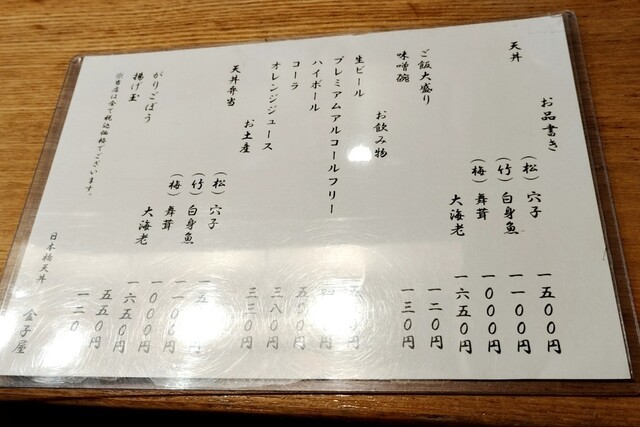 お品書き
天丼 (松) 穴子 一五〇〇円
(竹) 白身魚 一一〇〇円
(梅) 舞茸 一〇〇〇円
大海老 一六五〇円
ご飯大盛り 一二〇円
味噌碗 一三〇円
お飲み物
生ビール 円
プレミアムアルコールフリー 円
ハイボール 五〇〇円
コーラ 三八〇円
オレンジジュース 三三〇円
お土産
天丼弁当 (松) 穴子 一五
(竹) 白身魚 一一〇〇円
(梅) 舞茸 一〇〇〇円
大海老 一六五〇円
がりごぼう 五五〇円
揚げ玉 一二〇
※当店は全て税込価格でございます。
日本橋天丼 金子屋